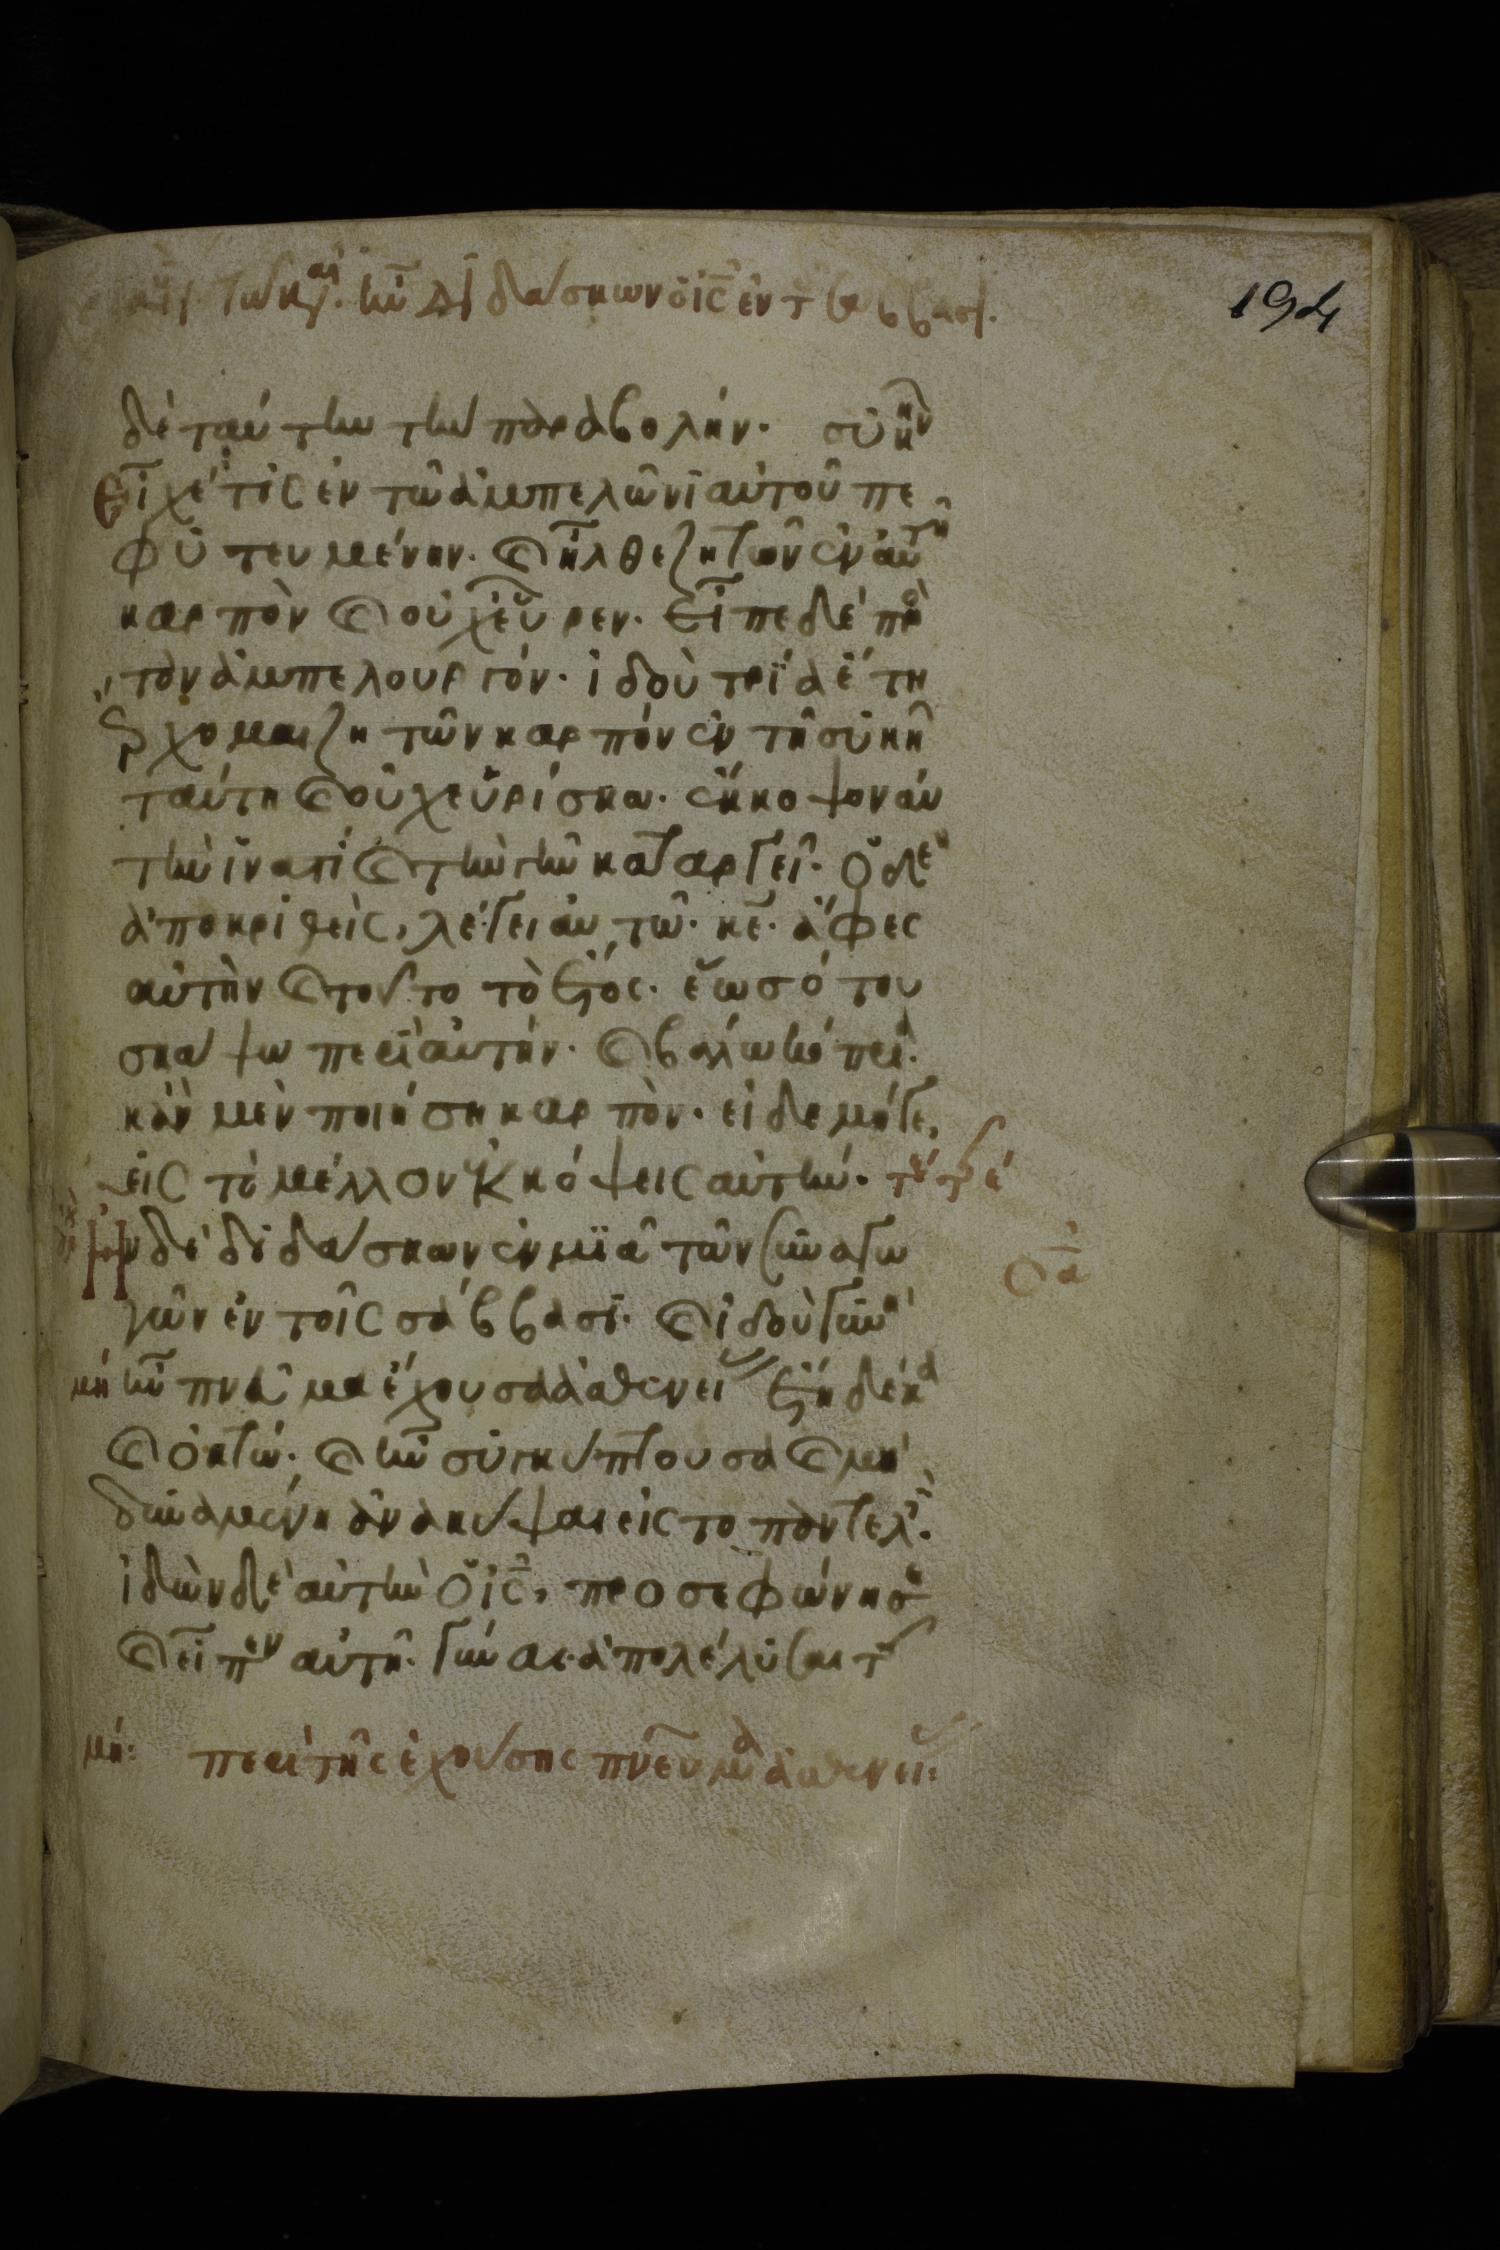 τῶ καιρ. ἦν διδάσκων ὁ ις ἐν τ σάββασι.
194
δὲ ταύτην τὴν παραβολήν. συκῆν
εἶχέ τις ἐν τῶ ἀμπελῶνι αὐτοῦ πε
φυτευμένην. καὶ ἦλθε ζητῶν ἐν αὐτῆ
καρπὸν καὶ οὐχ εὗρεν. εἶπε δὲ πρὸ
τὸν ἀμπελουργόν. ἰδοὺ τρία ἔτη
ἔρχομαι ζητῶν καρπὸν ἐν τῆ συκῆ
ταύτη καὶ οὐχ εὑρίσκω. ἔκκοψον αὐ
τὴν ἵνατί καὶ τὴν γῆν καταργεῖ. ὁ δὲ
ἀποκριθεὶς, λέγει αὐτῶ. κε. ἄφες
αὐτὴν καὶ τοῦτο τὸ ἔτος. ἕως ὅτου
σκάψω περὶ αὐτήν. καὶ βάλω κόπρια.
κἂν μὲν ποιήση καρπὸν. εἰ δὲ μήγε,
εἰς τὸ μέλλον ἐκκόψεις αὐτήν.
ἦν δὲ διδάσκων ἐν μιᾶ τῶν συναγω
γῶν ἐν τοῖς σάββασι. καὶ ἰδοὺ γυνὴ
μη ἦν πνα̂μα ἔχουσα ἀσθενείας ἔτη δέκα
καὶ ὀκτώ. καὶ ἦν συγκύπτουσα καὶ μὴ
δυναμένη ἀνακύψαι εἰς τὸ παντελές.
ἰδὼν δὲ αὐτὴν ὁ ις, προσεφώνησε
καὶ εἶπεν αὐτῆ. γύναι ἀπολέλυσαι τῆς
μη: περὶ τῆς ἐχούσης πνεῦμα ἀσθενείας: